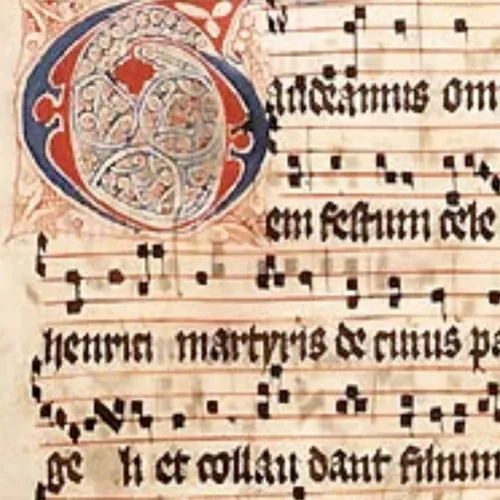 Gaudeamus om
em festum cele
henrici martyris de cuius pa
ge li et collau dant filium